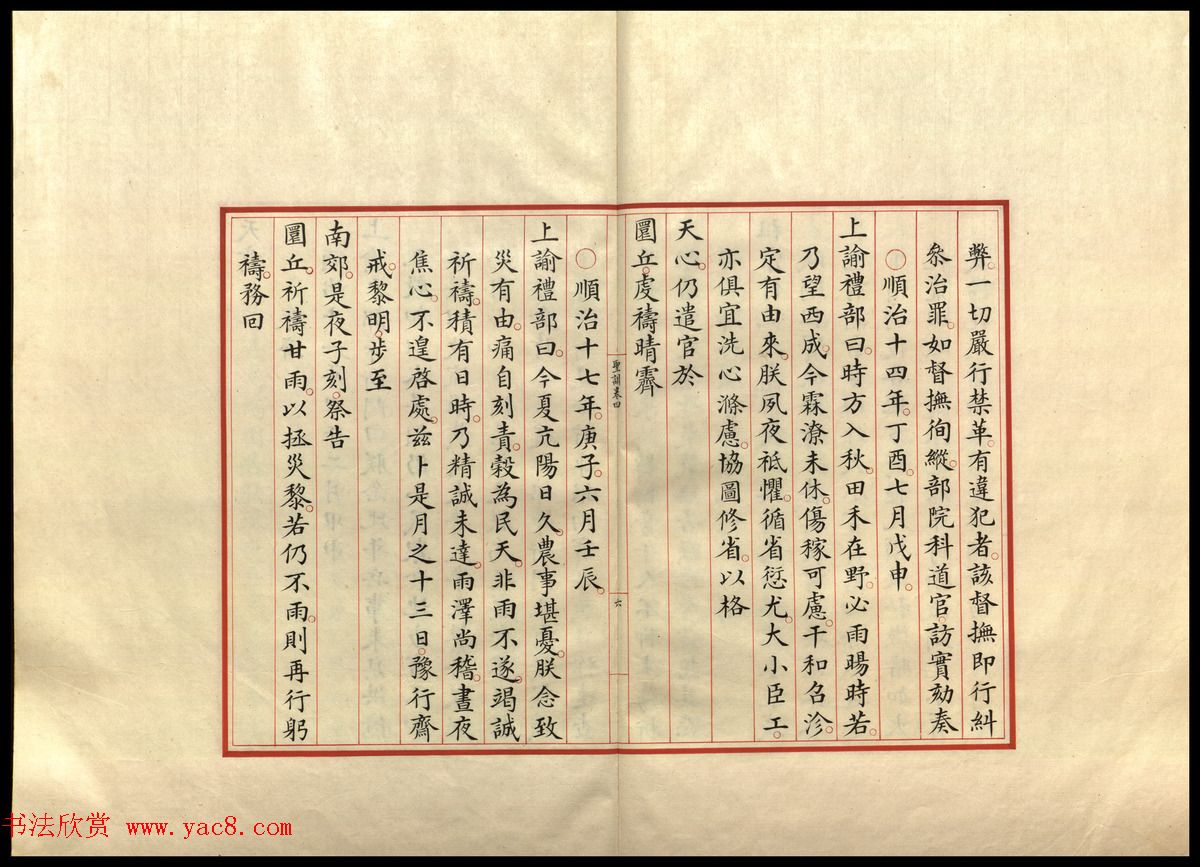 弊一切嚴行禁革有違犯者該督撫即行糾
叅治罪如督撫徇縱部院科道官訪實劾奏
〇順治十四年丁酉七月戊申
上諭禮部曰時方入秋田禾在野必雨暘時若
乃望西成今霖潦未休傷稼可慮干和名沴
定有由來朕夙夜祗懼循省愆尤大小臣工
亦俱宜洗心滌慮協圖修省以格
天心仍遣官於
圜丘虔禱晴霽
聖訓卷四
六
〇順治十七年庚子六月壬辰
上諭禮部曰今夏亢陽日久農事堪憂朕念致
災有由痛自刻責穀為民天非雨不遂竭誠
祈禱積有日時乃精誠未達雨澤尚稽晝夜
焦心不遑啓處兹卜是月之十三日豫行齋
戒黎明步至
南郊是夜子刻祭告
圜丘祈禱甘雨以拯災黎若仍不雨則再行躬
禱務回
书法欣赏 www.yac8.com